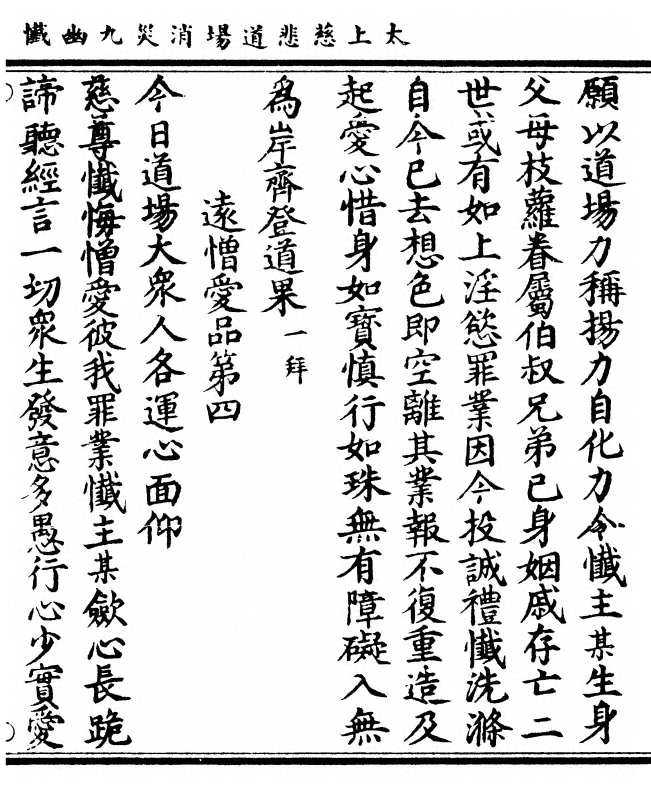 太上慈悲道場消災九幽懺
願以道場力稱揚力自化力令懺主某生身
父母枝蘿眷屬伯叔兄弟已身姻戚存亡二
世或有如上淫慾罪業因今投誠禮懺洗滌
自今已去想色即空離其業報不復重造及
起愛心惜身如寳慎行如珠無有障礙入無
為岸齊登道果一拜
遠憎愛品第四
今日道場大眾人各運心面仰
慈尊懺悔憎愛彼我罪業懺主某歛心長跪
諦聽經言一切眾生發意多愚行心少實愛